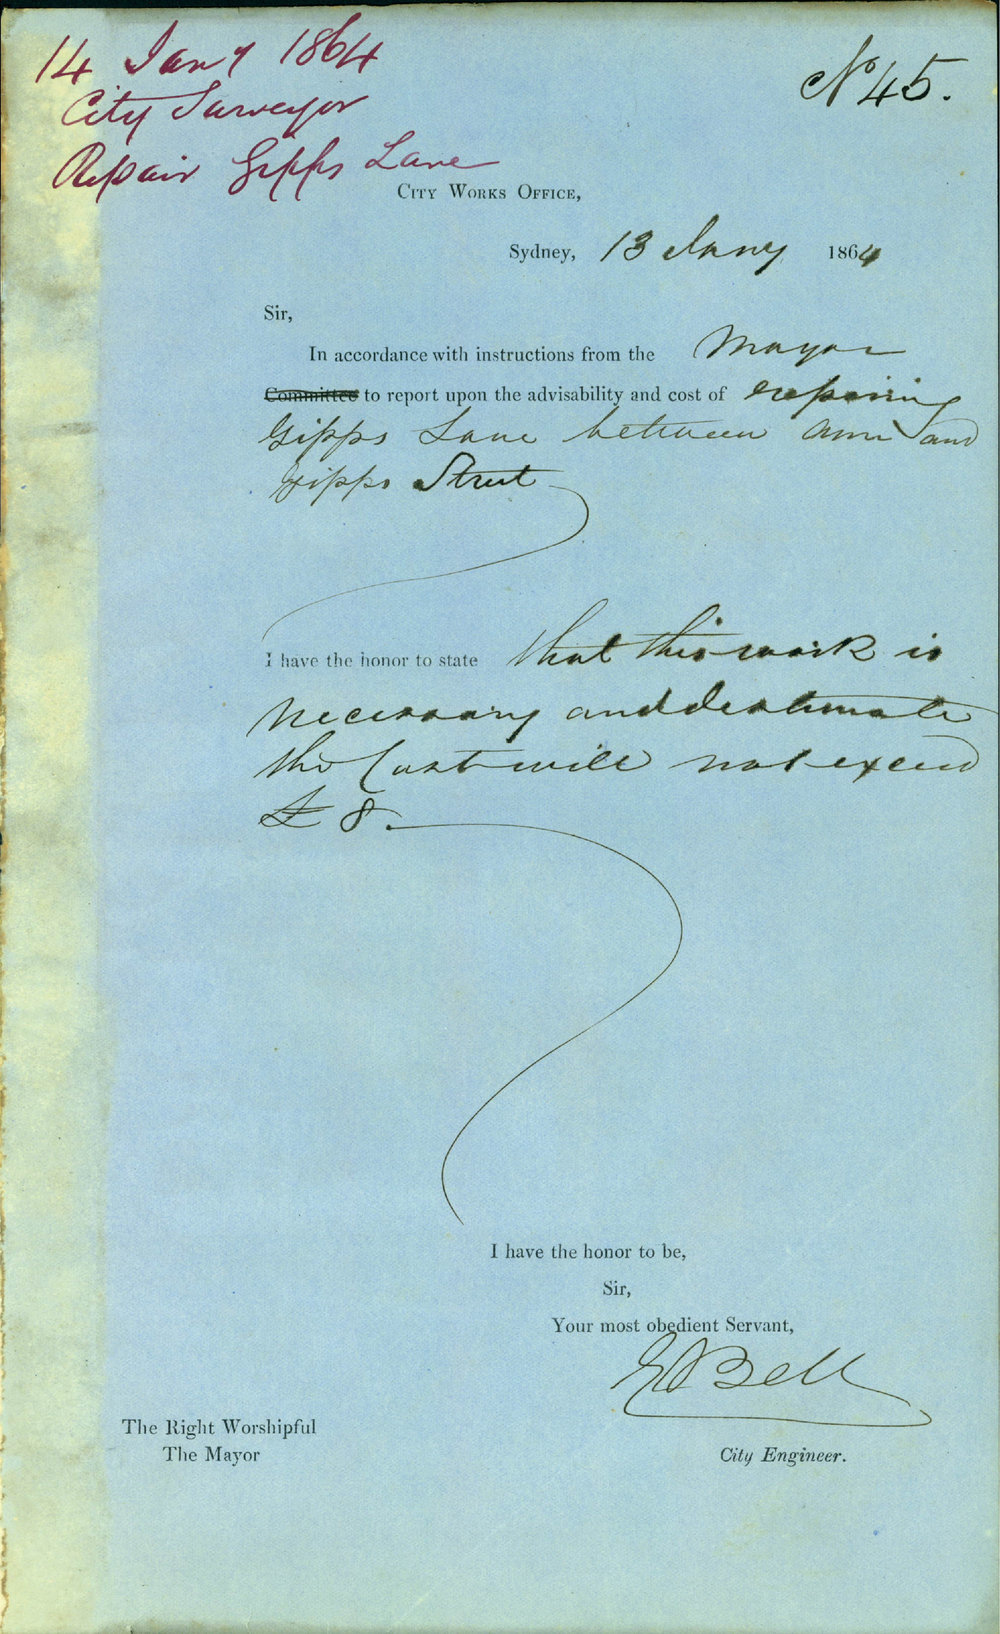 14 Jany 1864
City Surveyor
Repair Gipps Lane
No 45.
CITY WORKS OFFICE,
Sydney, 13 Jany 1864
Sir,
In accordance with instructions from the Mayor
Committee to report upon the advisability and cost of repairing
Gipps Lane between Ann and
Gipps Street
I have the honor to state that this work is
necessary and I estimate
the Cost will not exceed
£8.
I have the honor to be,
Sir,
Your most obedient Servant,
E Bell
The Right Worshipful
The Mayor
City Engineer.